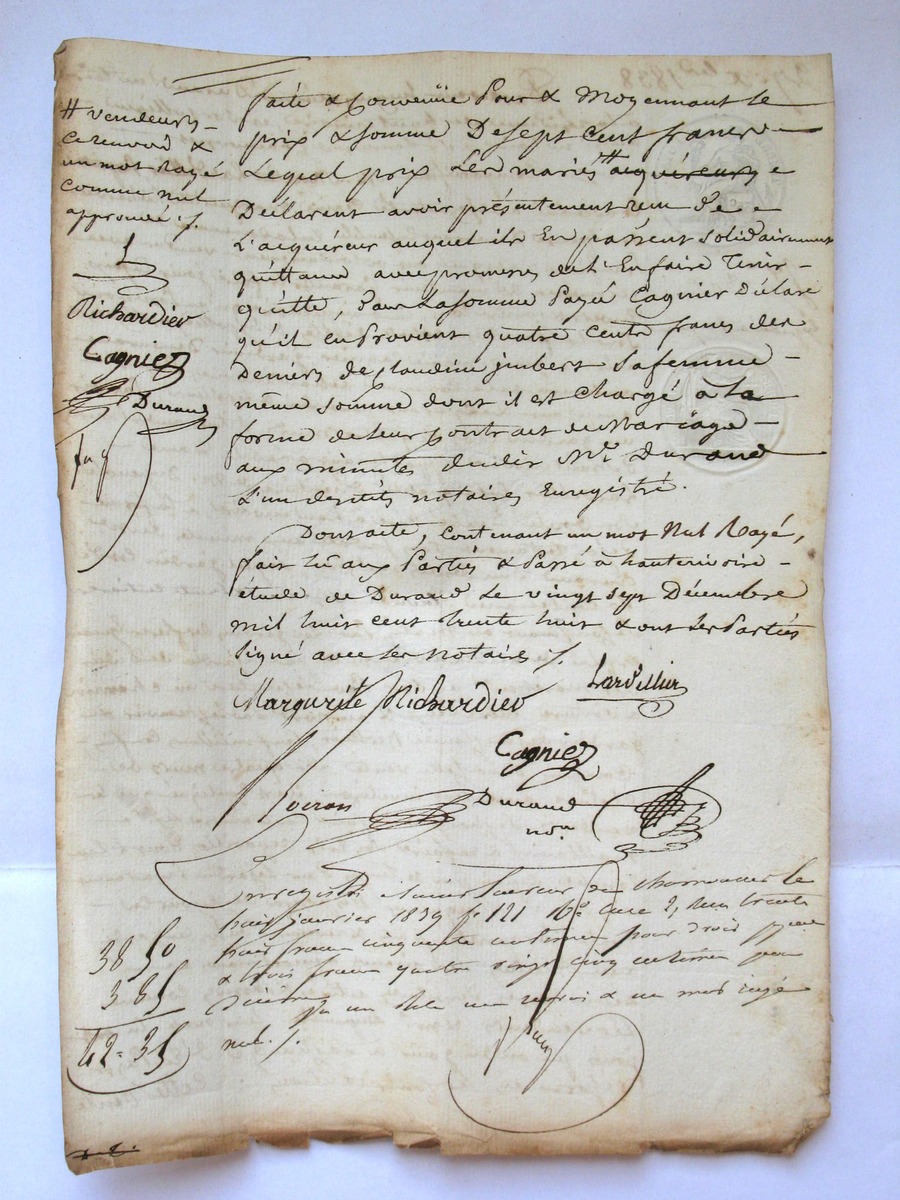 # vendeurs
ce renvoi &
un mot Rayé
comme nul
approuvé ./.
Richardier
Cagniez
Durand
faite & Convenüe Pour & Moyennant le
prix & somme De sept cent francs
Lequel prix Les mariés # acquéreurs
Déclarent avoir présentement reçu De
L'acquéreur auquel ils En passent solidairement
quittance avec promesse de l'En faire Tenir
quitte, Pour La somme Payé Cagnier Déclare
qu'il en Provient quatre cents francs des
Deniers de Claudine jmbert sa femme
même somme dont il est Chargé à la
forme de leur Contrat de Mariage
aux minutes dudit Me. Durand
L'un desdits notaires Enregistré.
Dont acte, contenant un mot Nul Rayé,
fait lü aux Parties & Passé à hauterivoire
étude de Durand Le vingt sept Décembre
mil huit cent trente huit & ont Les Parties
signé avec Les notaires ./.
Margurite Richardier
Lardellier
Cagniez
Voiron
Durand
nore
Enregistré à Saint Laurent de chamousset le
huit janvier 1839 fo 121 Vo. Case 2, Reçu trente
huit francs cinquante centimes pour droit
& trois francs quatre vingt cinq centimes pour
Décime un renvoi & un mot rayé
nul ./.
38 50
3 85
42 = 35